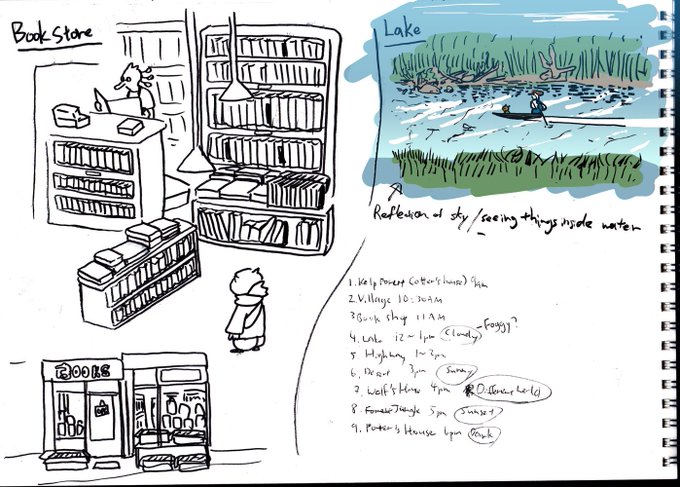 Book Store
BOOKS
Lake
Reflection of sky / seeing things inside water
1. Kelp Forest (otter's house) 9am
2. Village 10:30AM
3 Book shop 11AM
4. Lake 12~1pm Cloudy - Foggy?
5. Highway 1~2pm
6. Desert 3pm Sunny
7. Wolf's House 4pm (Different world)
8. Forest Jungle 5pm Sunset
9. House 6pm Dark